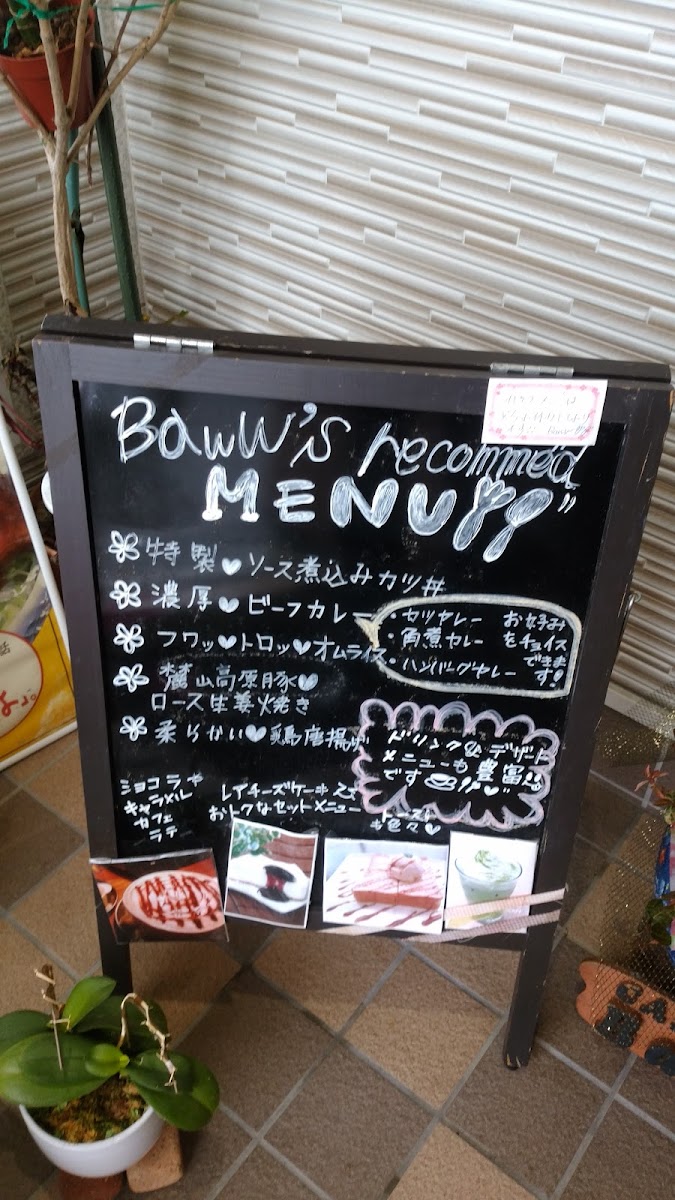 BawW's recommed
MENU
特製♥ソース煮込みカツ丼
濃厚♥ビーフカレー
・カツカレー
・角煮カレー
・ハンバーグカレー
お好み
をチョイス
できま
す!
フワッ♥トロッ♥オムライス
麓山高原豚♥
ロース生姜焼き
柔らかい♥鶏唐揚げ
ドリンク&デザート
メニューも豊富
です
ショコラや
キャラメル
カフェ
ラテ
レアチーズケーキ
おトクなセットメニュー
トースト
も色々♥